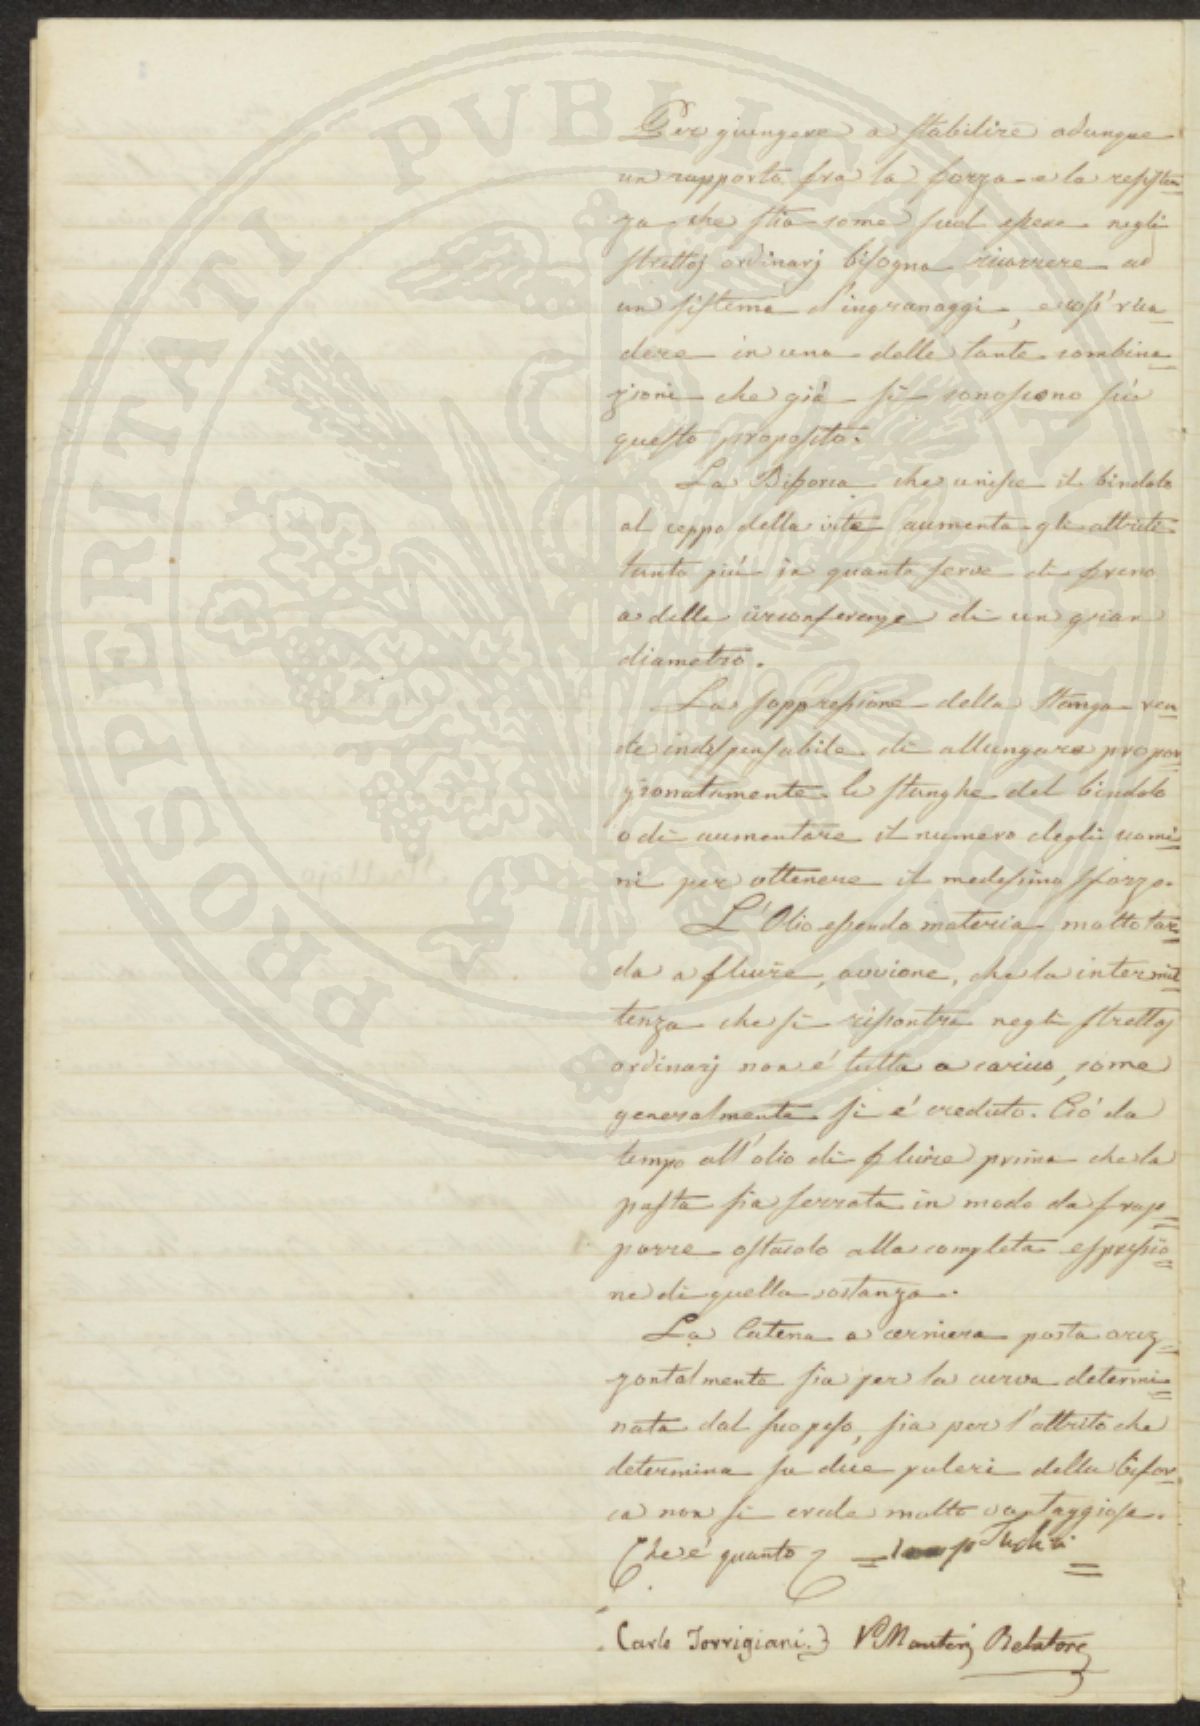 Per giungere a stabilire adunque
un rapporto fra la forza e la resisten=
za che stia come suol essere negli
strettoj ordinarj bisogna ricorrere ad
un sistema d'ingranaggi, e così rica=
dere in una delle tante combina=
zioni che già si conoscono su
questo proposito.
La Biforca che unisce il bindolo
al ceppo della vite aumenta gli attriti
tanto più in quanto serve di freno
a delle circonferenze di un gran
diametro.
La soppressione della Stanga ren=
de indispensabile di allungare propor=
zionatamente le stanghe del bindolo
o di aumentare il numero degli uomi=
ni per ottenere il medesimo sforzo.
L'Olio essendo materia molto tar=
da a fluire, avviene, che la intermit=
tenza che si riscontra negli strettoj
ordinarj non é tutta a carico, come
generalmente si é creduto. Ció da
tempo all'olio di fluire prima che la
pasta sia serrata in modo da frap=
porre ostacolo alla completa espressio=
ne di quella sostanza.
La Catena a cerniera posta oriz=
zontalmente sia per la curva determi=
nata dal suo peso, sia per l'attrito che
determina su due puleri della bifor=
ca non si crede molto vantaggiosa.
Che é quanto
Carlo Torrigiani. } V. Manteri Relatore
PROSPERITATI PVBLICAE AVGENDAE